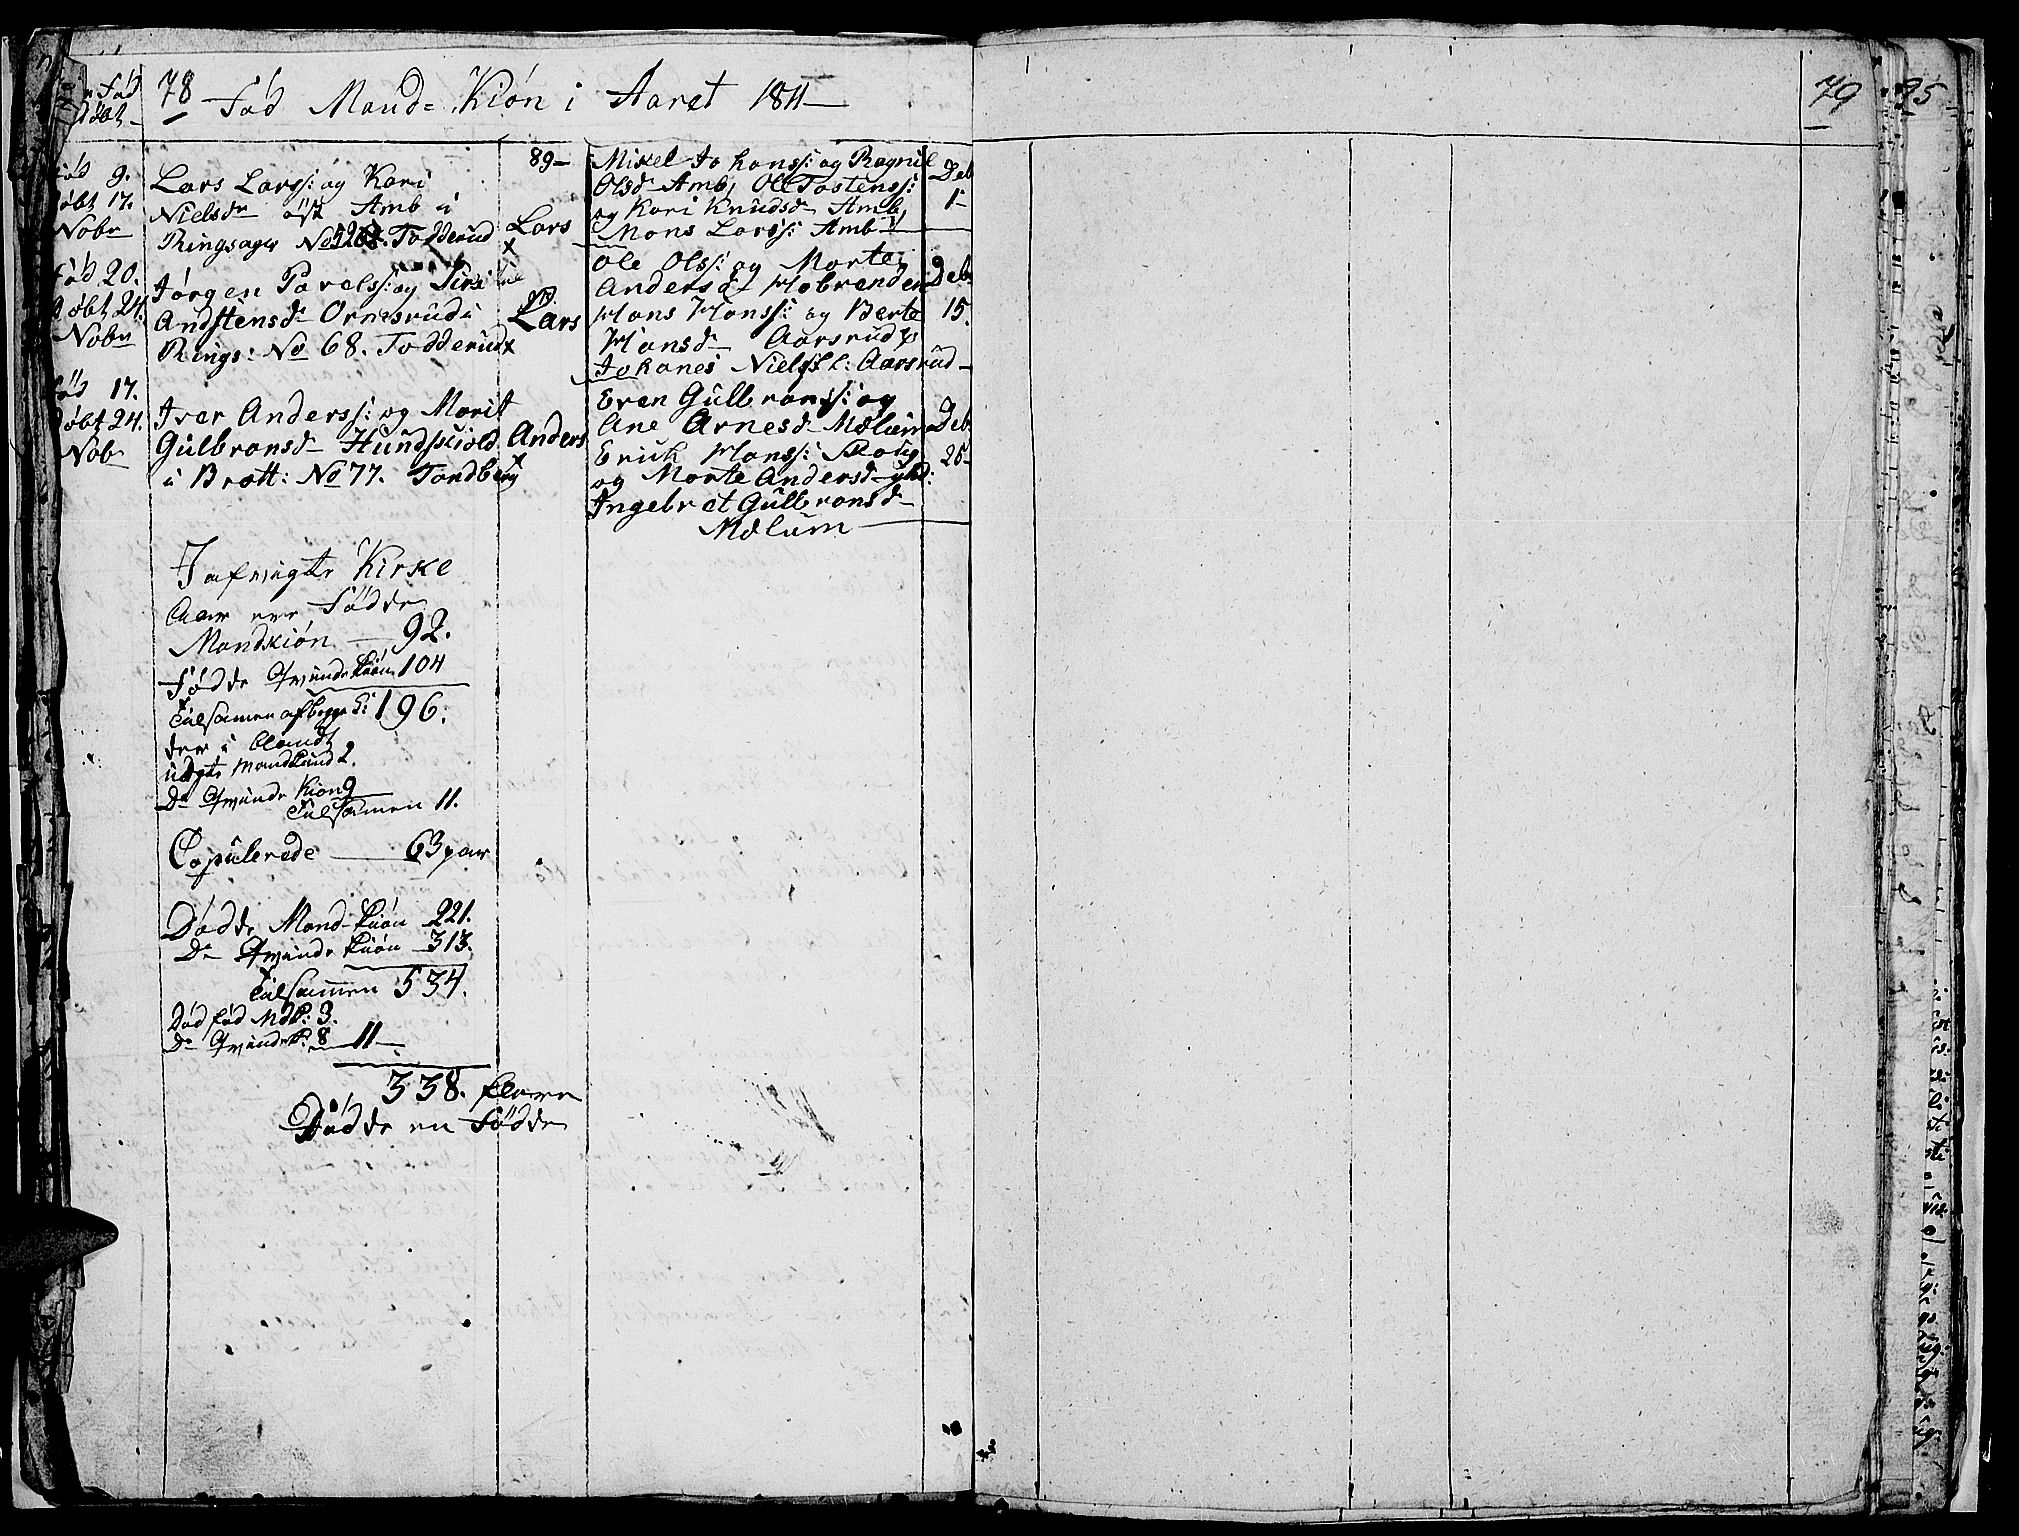 78 Fød Mand-Kiøn i Aaret 1811
79
95
Fød
døbt
Fød 9.
Døbt 17.
Nobr
Lars Larss: og Kari
Nielsdr øst Amb i
Ringsager No Todderud
89
Lars
Mikel Johanss: og Ragnil
Olsd Amb, Ole Tostenss:
og Kari Knudsd Amb,
Mons Larss: Amb
Deb
1
Fød 20.
Døbt 24.
Nobr
Jørgen Parelss: og Siri
Andstensd Ornesrud i
Rings: No 68. Todderud
Lars
Ole Olss: og Morte
Andersd Hobrenden
Hans Hanss: og Berte
Hansd Aarsrud
Johanes Nielss: Aarsrud
Deb
15.
Fød 17.
Døbt 24.
Nobr
Iver Anderss: og Morit
Gulbransd Hundskiold
i Brott: No 77. Tandberg
Anders
Even Gulbranss: og
Ane Arnesd Mælum
Erich Hanss:
og Morte Andersd
Ingebret Gulbransd
Mælum
Deb
26
I Kirke
Aar ere Fødde
Mandkiøn 92.
Fødde Qvindekiøn 104
Tilsamen af begge 196.
der i blandt
uægte Mandkiønd 2.
Do Qvinde Kiøn 9
Tilsamen 11.
Copulerede 63 par
Dødde Mand-kiøn 221.
Do Qvinde kiøn 313.
Tilsammen 534.
Død fød Mdk: 3.
Do Qvindek: 8 11
338. flere
Dødde en Fødde